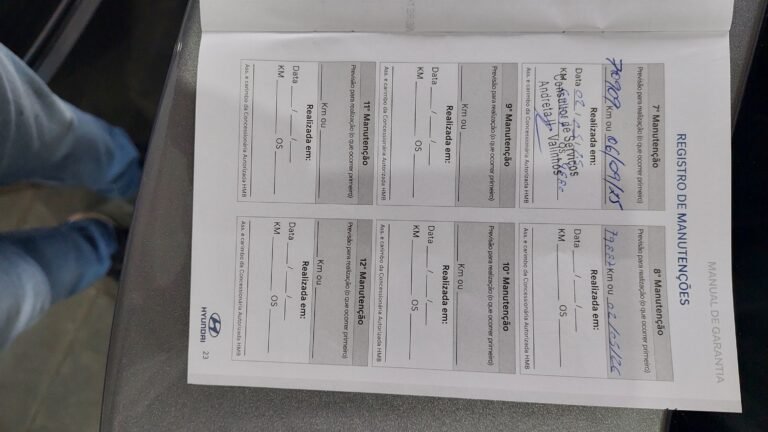 MANUAL DE GARANTIA
REGISTRO DE MANUTENÇÕES
7ª Manutenção
Previsão para realização (o que ocorrer primeiro)
Km ou 06/09/25
Realizada em:
Data
KM OS
Consultor de Serviços
Andreta Valinhos
Ass. e carimbo da Concessionária Autorizada HMB
8ª Manutenção
Previsão para realização (o que ocorrer primeiro)
Km ou
Realizada em:
Data __/__/__
KM ____ OS ____
Ass. e carimbo da Concessionária Autorizada HMB
9ª Manutenção
Previsão para realização (o que ocorrer primeiro)
____ Km ou ____
Realizada em:
Data __/__/__
KM ____ OS ____
Ass. e carimbo da Concessionária Autorizada HMB
10ª Manutenção
Previsão para realização (o que ocorrer primeiro)
____ Km ou ____
Realizada em:
Data __/__/__
KM ____ OS ____
Ass. e carimbo da Concessionária Autorizada HMB
11ª Manutenção
Previsão para realização (o que ocorrer primeiro)
____ Km ou ____
Realizada em:
Data __/__/__
KM ____ OS ____
Ass. e carimbo da Concessionária Autorizada HMB
12ª Manutenção
Previsão para realização (o que ocorrer primeiro)
____ Km ou ____
Realizada em:
Data __/__/__
KM ____ OS ____
Ass. e carimbo da Concessionária Autorizada HMB
HYUNDAI 23